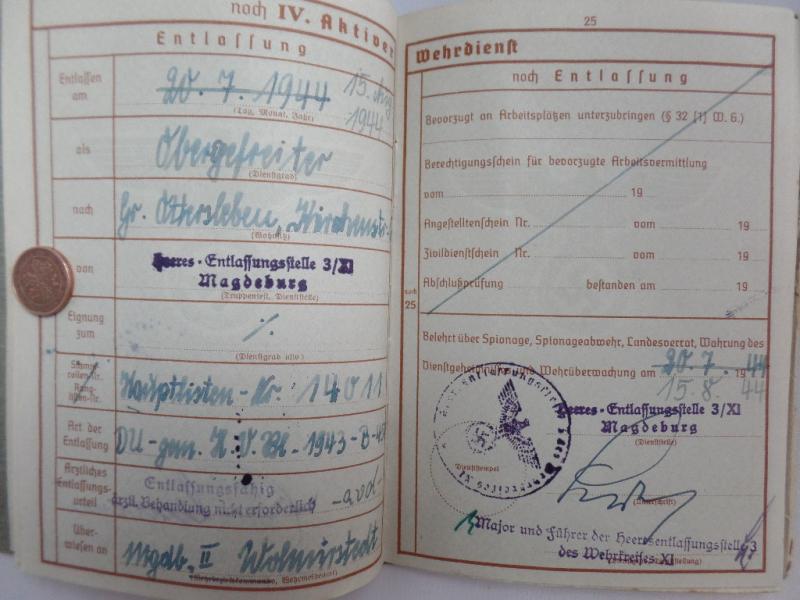 noch IV. Aktiver
Entlassung
Entlassen am
20. 7. 1944
15. Aug 1944
(Tag, Monat, Jahr)
als
Obergefreiter
(Dienstgrad)
nach
Gr. Ottersleben, Kirchenstr.
(Wohnsitz)
von
Heeres-Entlassungsstelle 3/XI
Magdeburg
(Truppenteil, Dienststelle)
Eignung zum
%
(Dienstgrad usw.)
Hauptlisten-Nr. 14011
Art der Entlassung
DU-gem. H.V.Bl-1943-B-
Ärztliches Entlassungs-urteil
Entlassungsfähig
ärztl. Behandlung nicht erforderlich
-avd-
Über-wiesen an
Mgdb. II Wolmirstedt
(Wehrbezirkskommando, Wehrmeldeamt)
25
Wehrdienst
noch Entlassung
Bevorzugt an Arbeitsplätzen unterzubringen (§ 32 [1] W. G.)
Berechtigungsschein für bevorzugte Arbeitsvermittlung
vom 19
Angestelltenschein Nr. vom 19
Zivildienstschein Nr. vom 19
Abschlußprüfung bestanden am 19
noch 25
Belehrt über Spionage, Spionageabwehr, Landesverrat, Wahrung des
Dienstgeheimnisses und Wehrüberwachung am 20. 7. 1944
15. 8. 44
Heeres-Entlassungsstelle 3/XI
Magdeburg
(Dienststelle)
Dienststempel
(Unterschrift)
Major und Führer der Heeresentlassungsstelle 3
des Wehrkreises XI